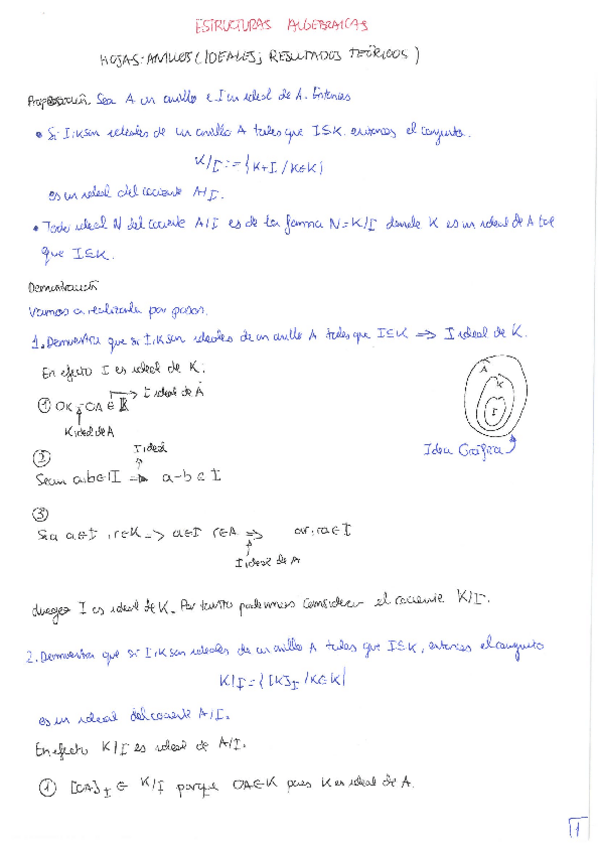 ESTRUCTURAS ALGEBRAICAS
HOJAS: ANILLOS (IDEALES; RESULTADOS TEÓRICOS)
Proposición. Sea A un anillo e I un ideal de A. Entonces
• Si I, K son ideales de un anillo A tales que I⊆K entonces el conjunto.
K/I := {K+I / K∈K}
es un ideal del cociente A/I.
• Todo ideal N del cociente A/I es de la forma N=K/I donde K es un ideal de A tal
que I⊆K.
Demostración
Vamos a realizarla por pasos.
1. Demuestra que si I, K son ideales de un anillo A tales que I⊆K ⇒ I ideal de K.
En efecto I es ideal de K:
I ideal de A
① OK = OA ∈
K ideal de A
A
K
I
Idea Gráfica
I ideal
②
Sean a,b∈I ⇒ a-b ∈ I
③
Sea a∈I, r∈K → a∈I r∈A ⇒ ar, ra∈I
I ideal de A
Luego I es ideal de K. Por tanto podemos considerar el cociente K/I.
2. Demuestra que si I, K son ideales de un anillo A tales que I⊆K, entonces el conjunto
K/I = {[K]I / K∈K}
es un ideal del cociente A/I.
En efecto K/I es ideal de A/I.
① [OA]I ∈ K/I porque OA∈K pues K es ideal de A.
1